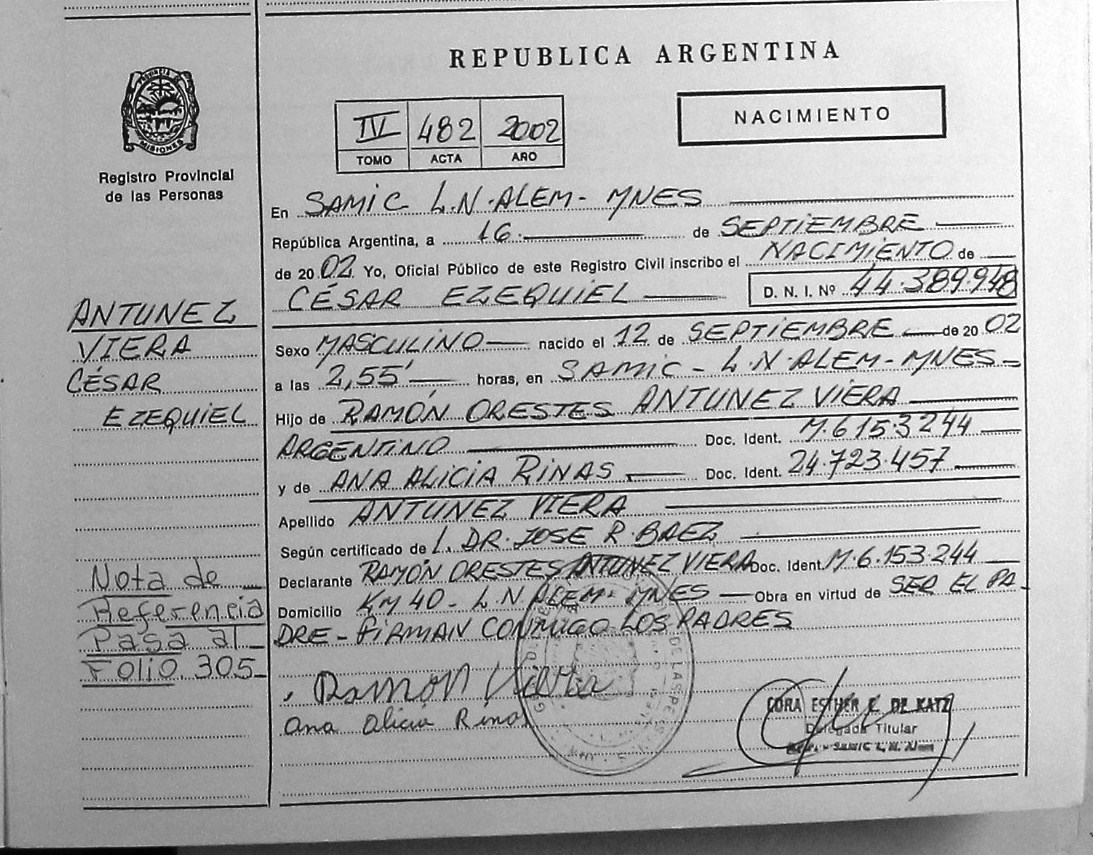 REPUBLICA ARGENTINA
PROVINCIA DE
MISIONES
Registro Provincial
de las Personas
IV 482 2002
TOMO ACTA AÑO
NACIMIENTO
En SAMIC L.N.ALEM- MNES
República Argentina, a 16 de SEPTIEMBRE
de 2002. Yo, Oficial Público de este Registro Civil inscribo el NACIMIENTO de
CÉSAR EZEQUIEL D. N. I. Nº 44.389.948
Sexo MASCULINO nacido el 12 de SEPTIEMBRE de 2002
a las 2,55' horas, en SAMIC - L.N.ALEM-MNES-
Hijo de RAMÓN ORESTES ANTUNEZ VIERA
ARGENTINO Doc. Ident. M.6153244
y de ANA ALICIA RINAS Doc. Ident. 24.723.457
Apellido ANTUNEZ VIERA
Según certificado de L. DR. JOSE R. BAEZ
Declarante RAMÓN ORESTES ANTUNEZ VIERA Doc. Ident. M.6.153.244
Domicilio KM 40- L.N.ALEM-MNES Obra en virtud de SER EL PA-
DRE- FIRMAN CONMIGO LOS PADRES
Ramon Vieira
Ana Alicia Rinas
CORA ESTHER DE KATZ
Delegada Titular
SAMIC L. N. Alem
ANTUNEZ
VIERA
CÉSAR
EZEQUIEL
Nota de
Referencia
Pasa al
Folio 305-